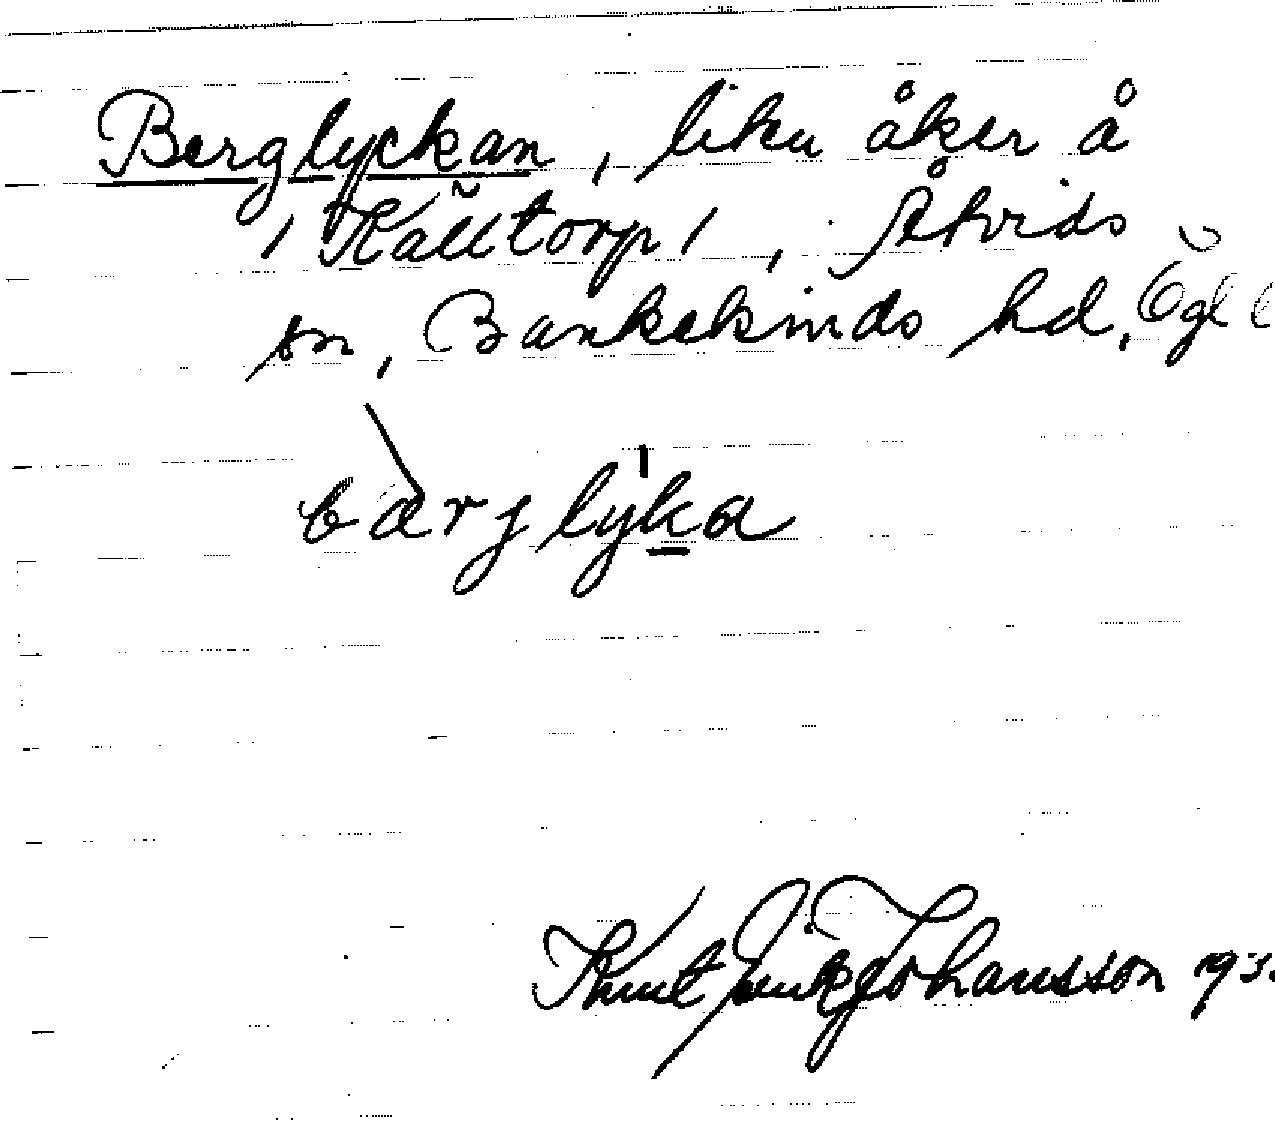 Berglyckan, liku åker å
/ Källtorp /, Åtvids
sn, Bankekinds hd, Ögl
bærglyka
Knut Johansson 193